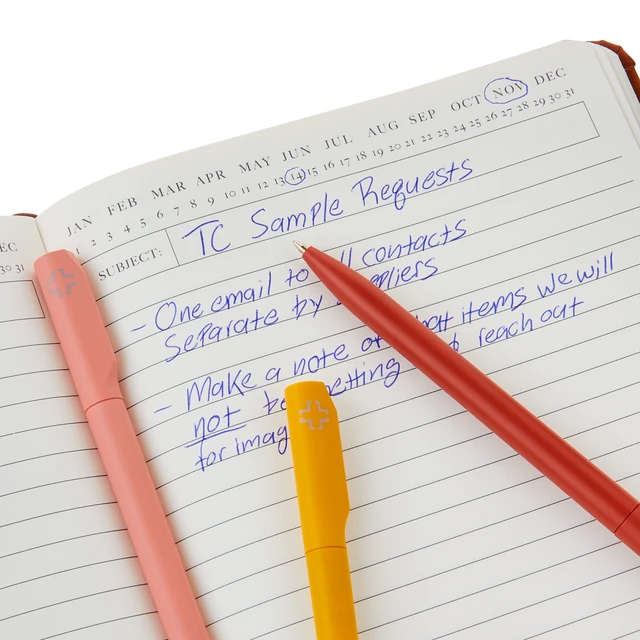 EC
30 31
JAN FEB MAR APR MAY JUN JUL AUG SEP OCT NOV DEC
1 2 3 4 5 6 7 8 9 10 11 12 13 14 15 16 17 18 19 20 21 22 23 24 25 26 27 28 29 30 31
SUBJECT: TC Sample Requests
- One email to all contacts
Separate by suppliers
- Make a note of what items we will
not be getting reach out
for imag